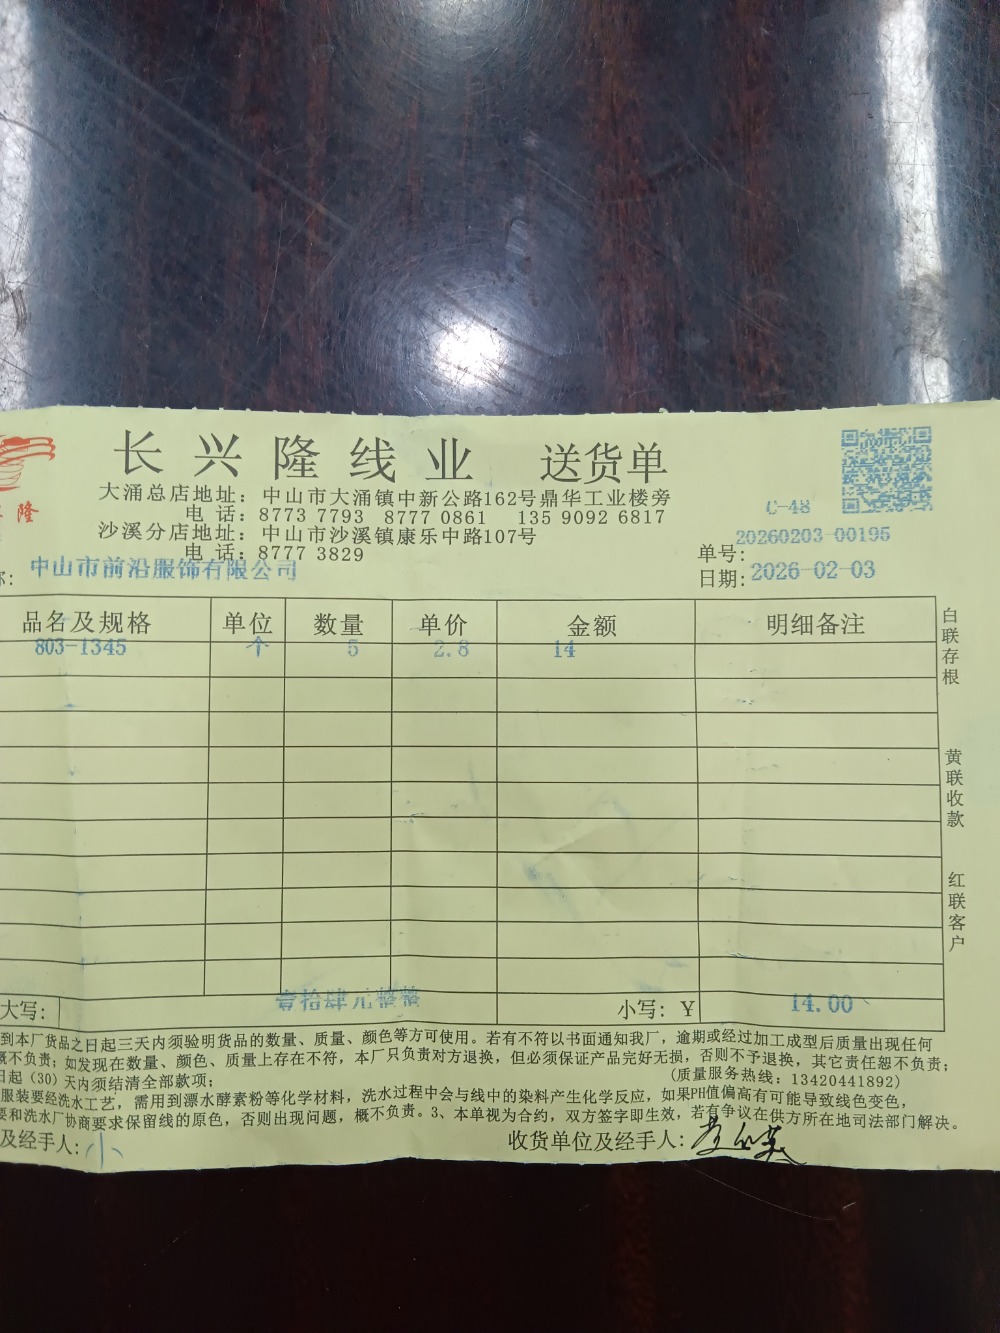 长兴隆线业 送货单
隆
大涌总店地址：中山市大涌镇中新公路162号鼎华工业楼旁
电 话：8773 7793 8777 0861 135 9092 6817
沙溪分店地址：中山市沙溪镇康乐中路107号
电 话：8777 3829
C-48
单号：20260203-00195
日期：2026-02-03
称：中山市前沿服饰有限公司
品名及规格 单位 数量 单价 金额 明细备注
803-1345 个 5 2.8 14
白联存根
黄联收款
红联客户
大写： 壹拾肆元整整 小写：￥ 14.00
到本厂货品之日起三天内须验明货品的数量、质量、颜色等方可使用。若有不符以书面通知我厂，逾期或经过加工成型后质量出现任何
概不负责；如发现在数量、颜色、质量上存在不符，本厂只负责对方退换，但必须保证产品完好无损，否则不予退换，其它责任恕不负责；
日起（30）天内须结清全部款项；
（质量服务热线：13420441892）
服装要经洗水工艺，需用到漂水酵素粉等化学材料，洗水过程中会与线中的染料产生化学反应，如果PH值偏高有可能导致线色变色，
要和洗水厂协商要求保留线的原色，否则出现问题，概不负责。3、本单视为合约，双方签字即生效，若有争议在供方所在地司法部门解决。
及经手人：小 收货单位及经手人：